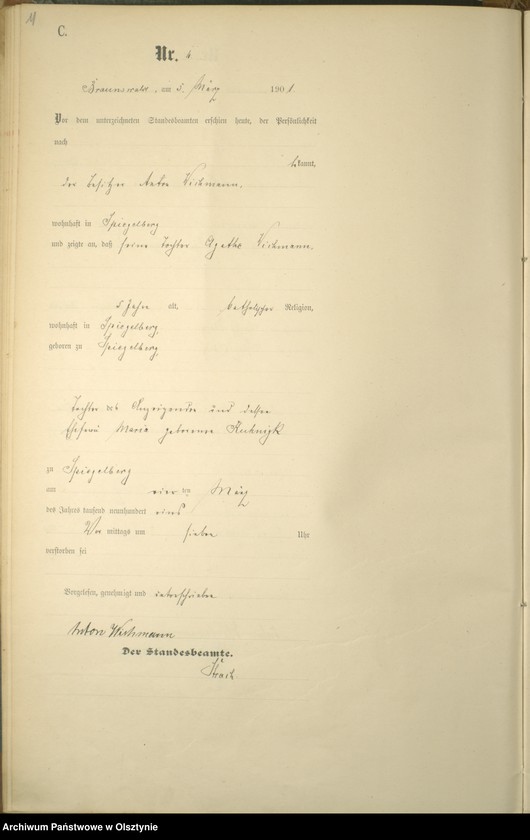 C.
Nr. 4
Braunswalde, am 5. März 1901.
Vor dem unterzeichneten Standesbeamten erschien heute, der Persönlichkeit
nach
bekannt,
der Besitzer Anton
wohnhaft in Spiegelberg
und zeigte an, daß seine Tochter Agathe
5 Jahre alt, katholischer Religion,
wohnhaft in Spiegelberg,
geboren zu Spiegelberg,
Tochter des Anzeigenden und dessen
Ehefrau Maria geborenen
zu Spiegelberg
am vier ten März
des Jahres tausend neunhundert eins
Vor mittags um sieben Uhr
verstorben sei
Vorgelesen, genehmigt und unterschrieben
Anton
Der Standesbeamte.
Archiwum Państwowe w Olsztynie